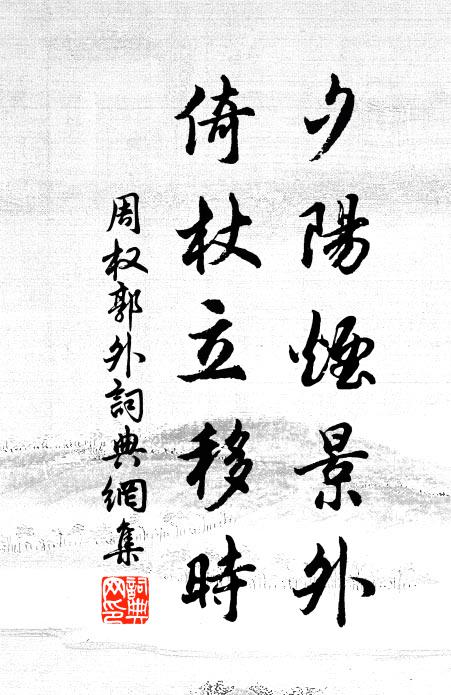 夕陽煙景外
倚杖立移時
周权郭外詞典網集
詞典